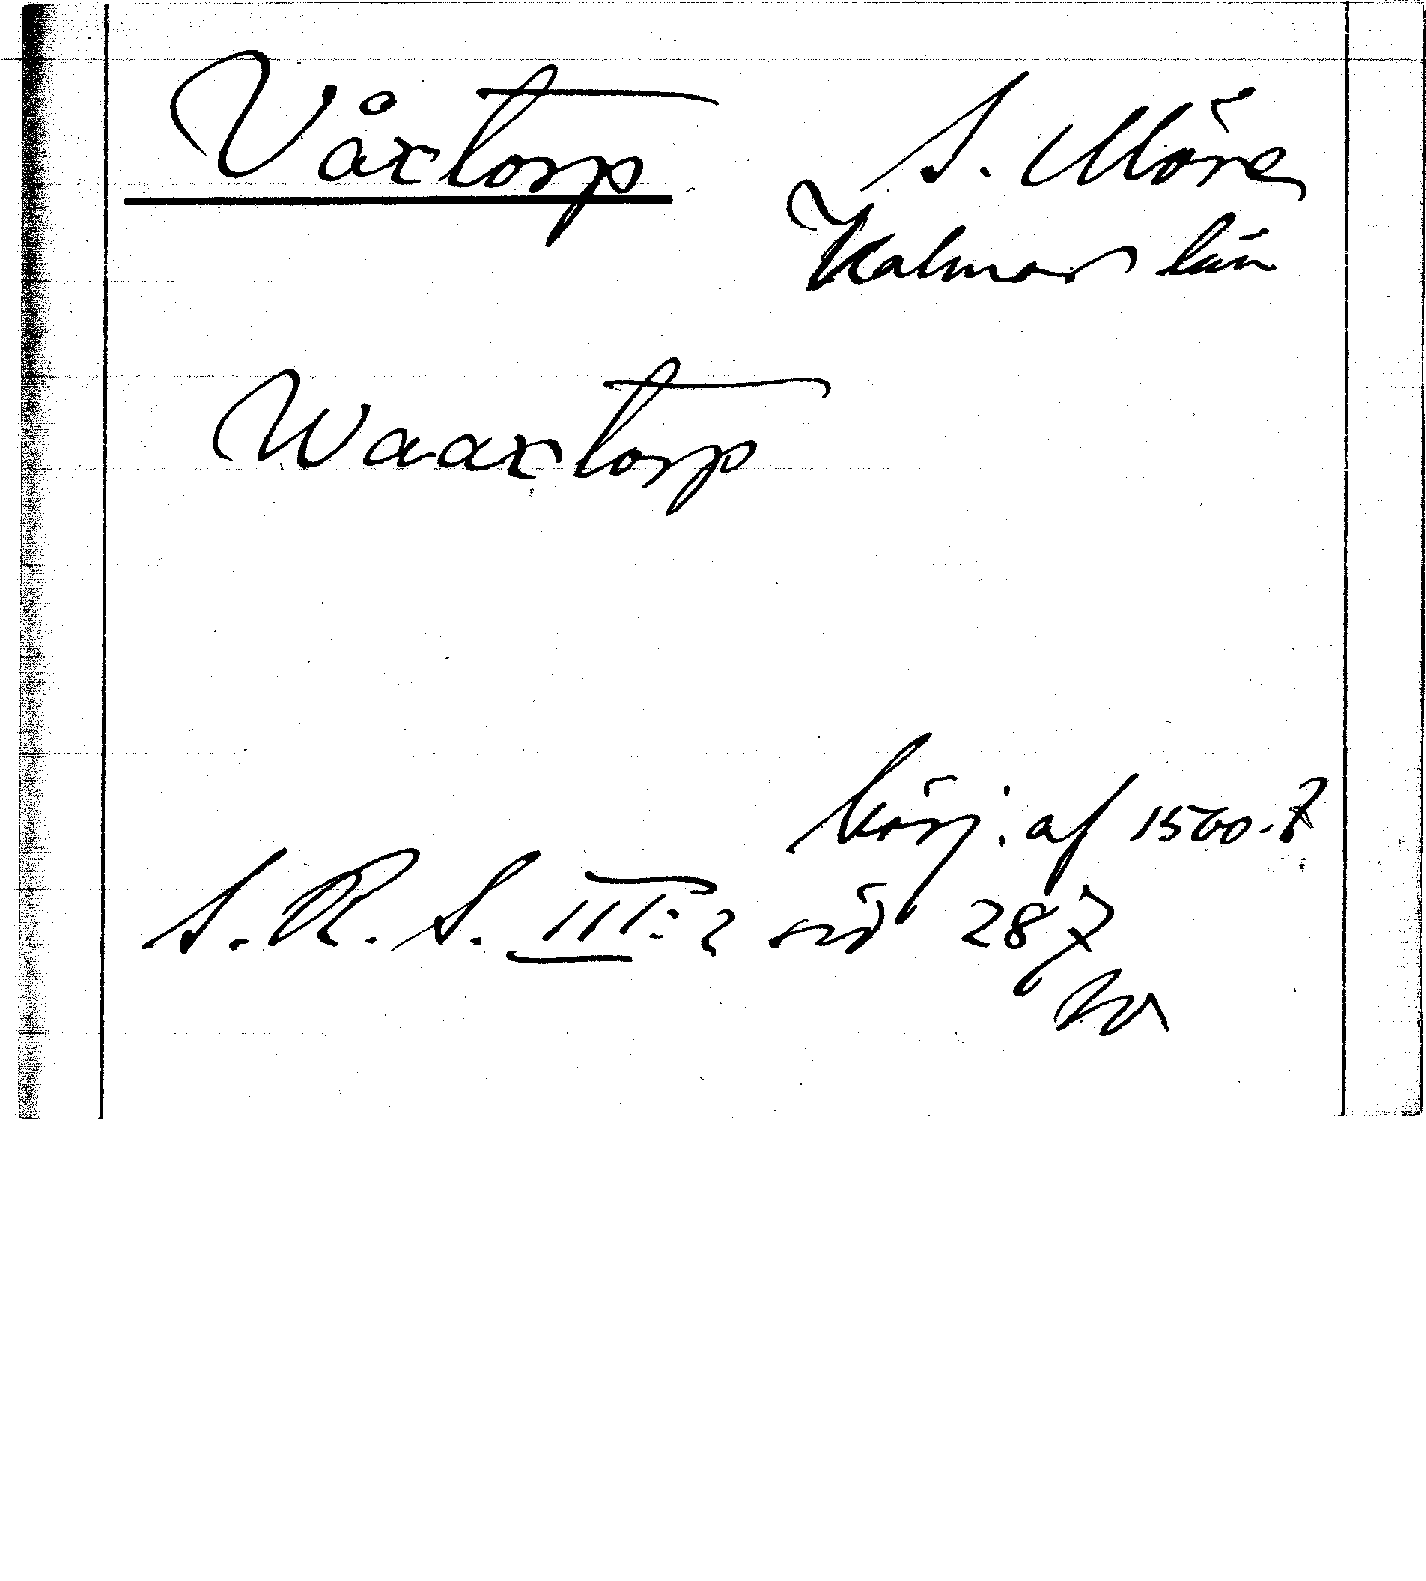 Våxtorp
S. Möre
Kalmar län
Waaxtorp
börj. af 1500-t
S. R. S. III:2 sid 287